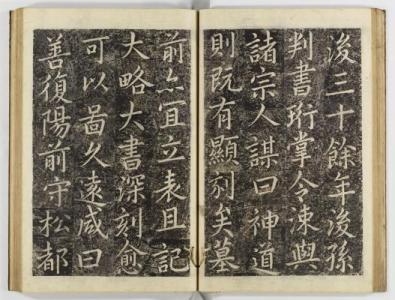 後三十餘年後孫
判書珩掌令涑與
諸宗人謀曰神道
則既有顯刻矣墓
前亦宜立表且記
大略大書深刻愈
可以啚久遠咸曰
善復陽前守松都